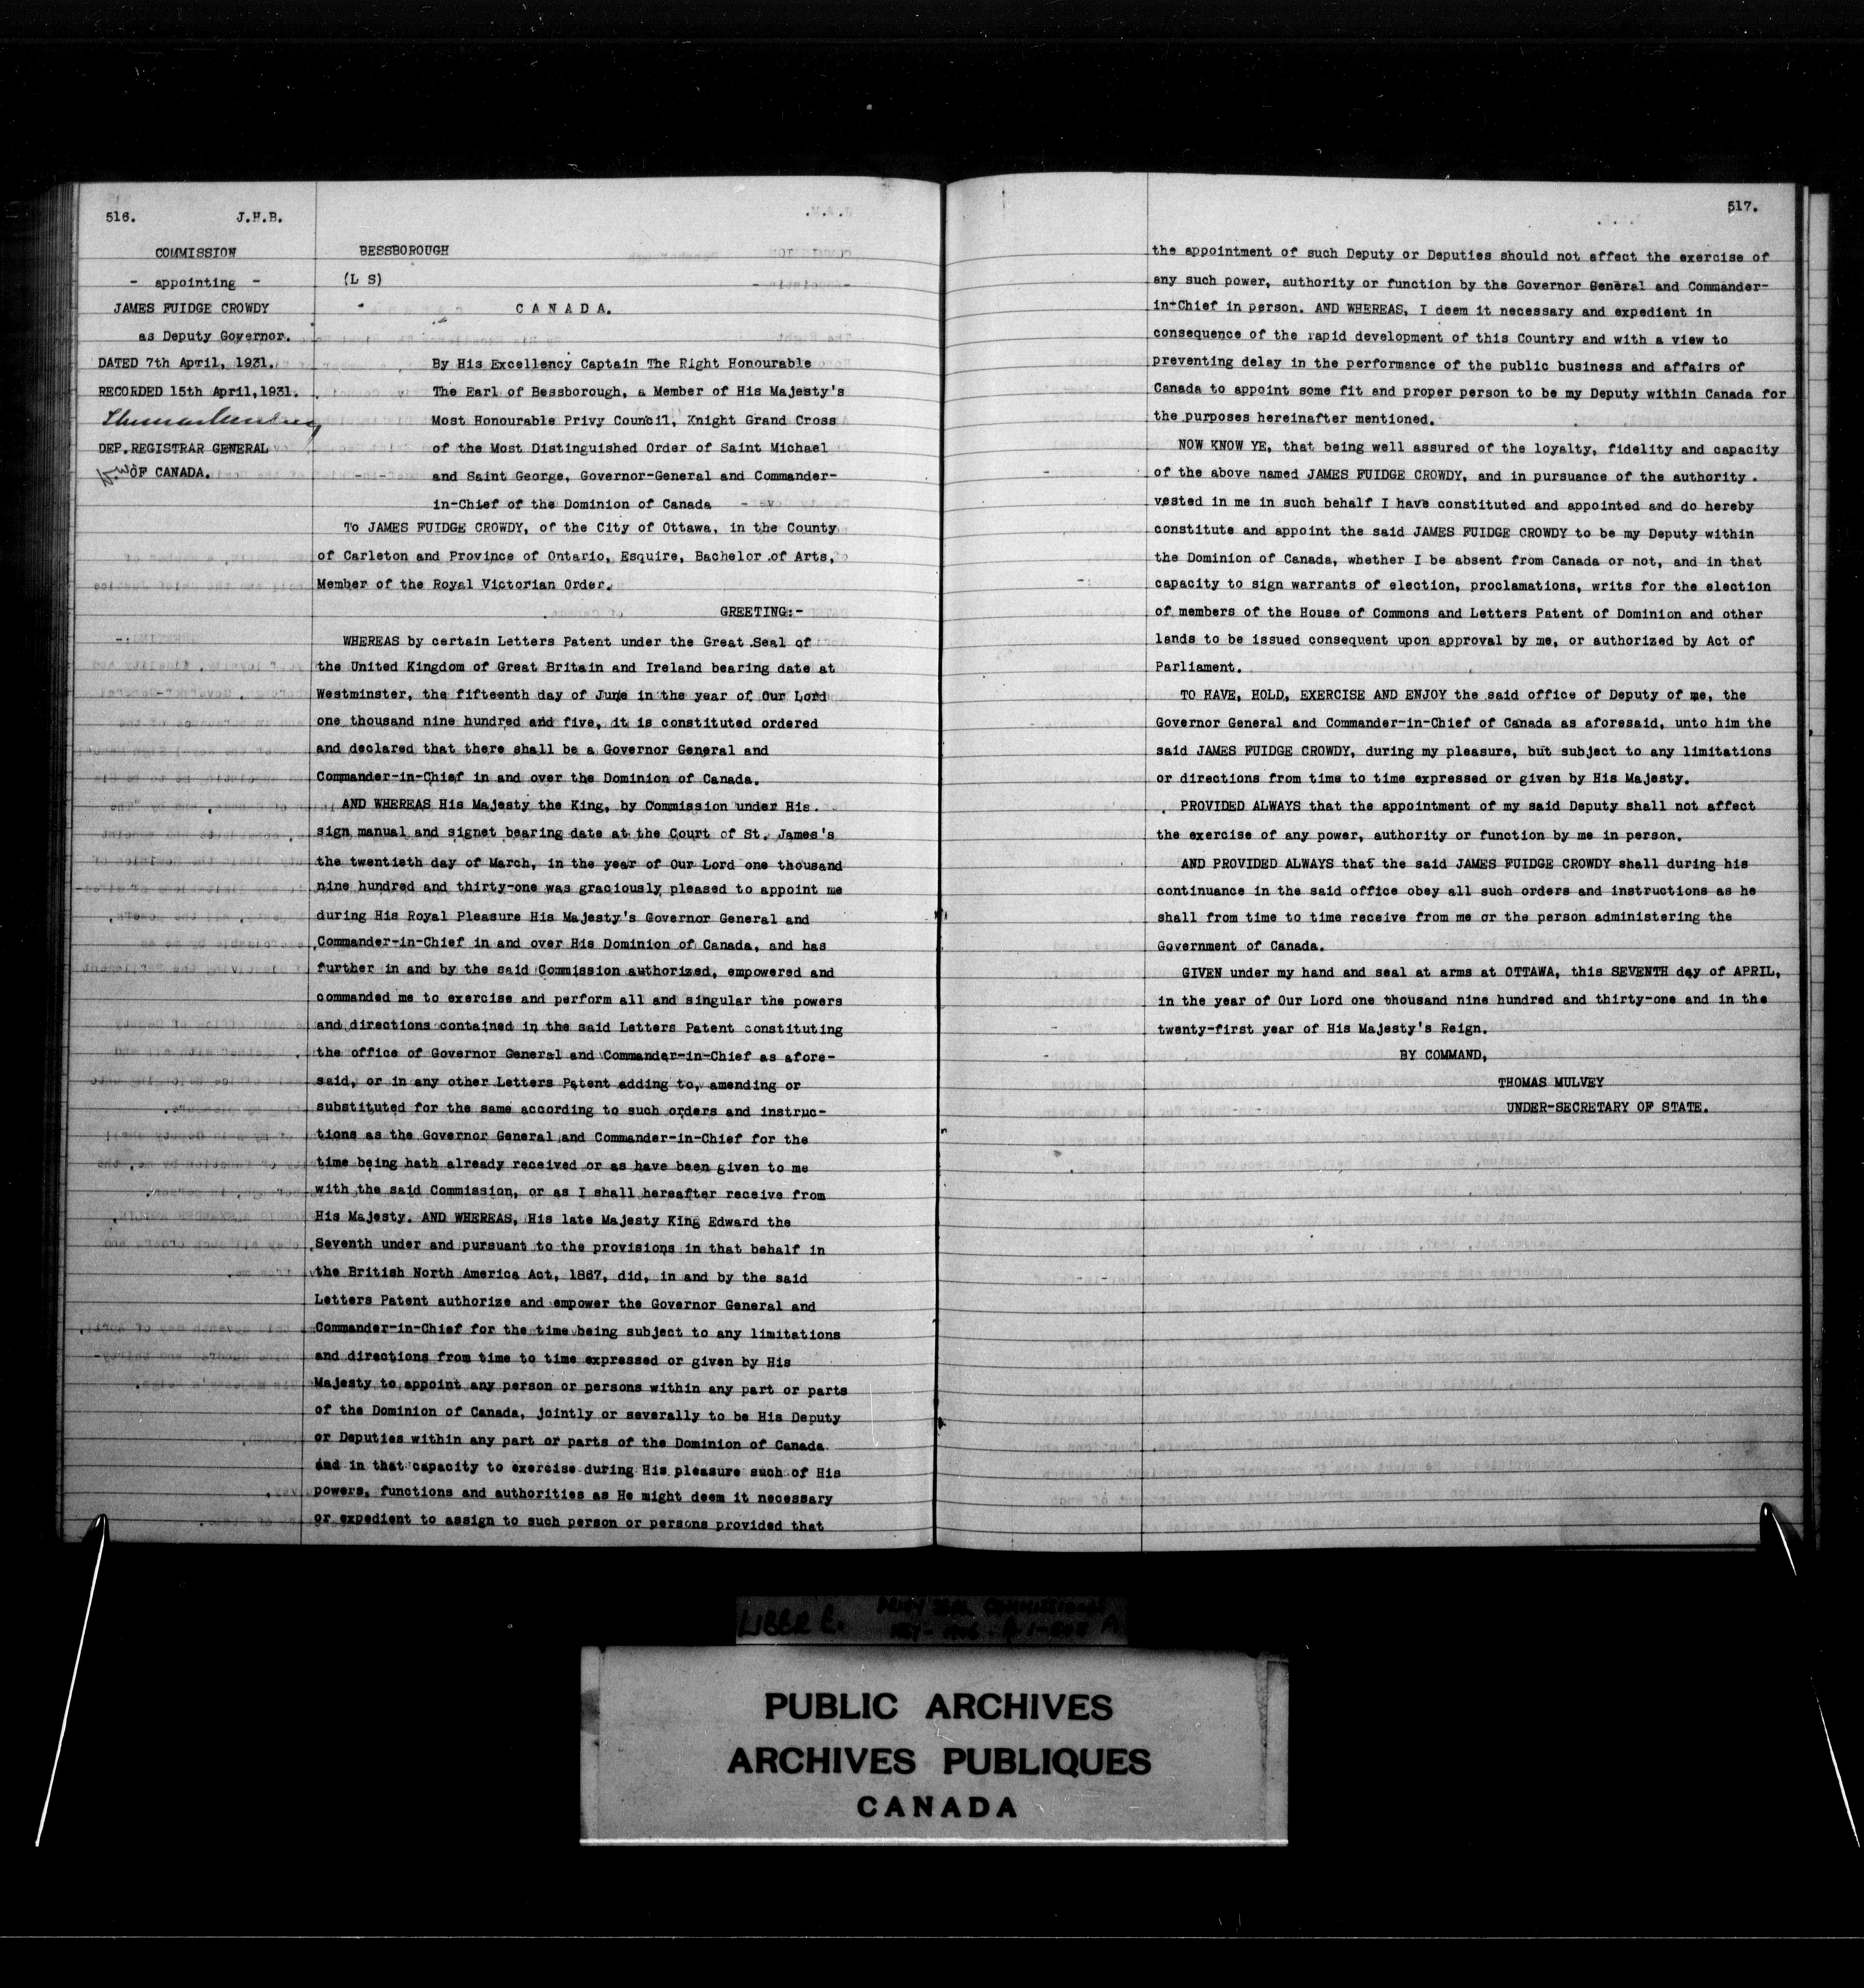 516. J.H.B.
COMMISSION
- appointing -
JAMES FUIDGE CROWDY
as Deputy Governor.
DATED 7th April, 1931.
RECORDED 15th April,1931.
DEP.REGISTRAR GENERAL
OF CANADA.
BESSBOROUGH
(L S)
C A N A D A.
By His Excellency Captain The Right Honourable
The Earl of Bessborough, a Member of His Majesty's
Most Honourable Privy Council, Knight Grand Cross
of the Most Distinguished Order of Saint Michael
and Saint George, Governor-General and Commander-
in-Chief of the Dominion of Canada
To JAMES FUIDGE CROWDY, of the City of Ottawa, in the County
of Carleton and Province of Ontario, Esquire, Bachelor of Arts,
Member of the Royal Victorian Order.
GREETING:-
WHEREAS by certain Letters Patent under the Great Seal of
the United Kingdom of Great Britain and Ireland bearing date at
Westminster, the fifteenth day of June in the year of Our Lord
one thousand nine hundred and five, it is constituted ordered
and declared that there shall be a Governor General and
Commander-in-Chief in and over the Dominion of Canada.
AND WHEREAS His Majesty the King, by Commission under His
sign manual and signet bearing date at the Court of St. James's
the twentieth day of March, in the year of Our Lord one thousand
nine hundred and thirty-one was graciously pleased to appoint me
during His Royal Pleasure His Majesty's Governor General and
Commander-in-Chief in and over His Dominion of Canada, and has
further in and by the said Commission authorized, empowered and
commanded me to exercise and perform all and singular the powers
and directions contained in the said Letters Patent constituting
the office of Governor General and Commander-in-Chief as afore-
said, or in any other Letters Patent adding to, amending or
substituted for the same according to such orders and instruc-
tions as the Governor General and Commander-in-Chief for the
time being hath already received or as have been given to me
with the said Commission, or as I shall hereafter receive from
His Majesty. AND WHEREAS, His late Majesty King Edward the
Seventh under and pursuant to the provisions in that behalf in
the British North America Act, 1867, did, in and by the said
Letters Patent authorize and empower the Governor General and
Commander-in-Chief for the time being subject to any limitations
and directions from time to time expressed or given by His
Majesty to appoint any person or persons within any part or parts
of the Dominion of Canada, jointly or severally to be His Deputy
or Deputies within any part or parts of the Dominion of Canada
and in that capacity to exercise during His pleasure such of His
powers, functions and authorities as He might deem it necessary
or expedient to assign to such person or persons provided that
517.
the appointment of such Deputy or Deputies should not affect the exercise of
any such power, authority or function by the Governor General and Commander-
in-Chief in person. AND WHEREAS, I deem it necessary and expedient in
consequence of the rapid development of this Country and with a view to
preventing delay in the performance of the public business and affairs of
Canada to appoint some fit and proper person to be my Deputy within Canada for
the purposes hereinafter mentioned.
NOW KNOW YE, that being well assured of the loyalty, fidelity and capacity
of the above named JAMES FUIDGE CROWDY, and in pursuance of the authority
vested in me in such behalf I have constituted and appointed and do hereby
constitute and appoint the said JAMES FUIDGE CROWDY to be my Deputy within
the Dominion of Canada, whether I be absent from Canada or not, and in that
capacity to sign warrants of election, proclamations, writs for the election
of members of the House of Commons and Letters Patent of Dominion and other
lands to be issued consequent upon approval by me, or authorized by Act of
Parliament.
TO HAVE, HOLD, EXERCISE AND ENJOY the said office of Deputy of me, the
Governor General and Commander-in-Chief of Canada as aforesaid, unto him the
said JAMES FUIDGE CROWDY, during my pleasure, but subject to any limitations
or directions from time to time expressed or given by His Majesty.
PROVIDED ALWAYS that the appointment of my said Deputy shall not affect
the exercise of any power, authority or function by me in person.
AND PROVIDED ALWAYS that the said JAMES FUIDGE CROWDY shall during his
continuance in the said office obey all such orders and instructions as he
shall from time to time receive from me or the person administering the
Government of Canada.
GIVEN under my hand and seal at arms at OTTAWA, this SEVENTH day of APRIL,
in the year of Our Lord one thousand nine hundred and thirty-one and in the
twenty-first year of His Majesty's Reign.
BY COMMAND,
THOMAS MULVEY
UNDER-SECRETARY OF STATE.
LIBER E.
PUBLIC ARCHIVES
ARCHIVES PUBLIQUES
CANADA